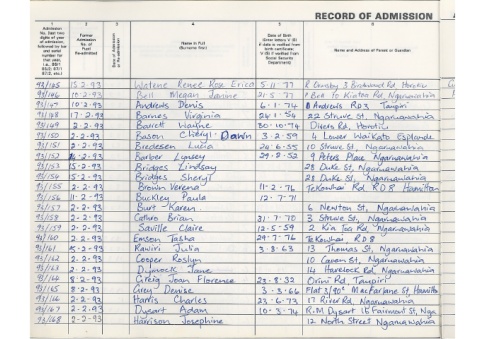 RECORD OF ADMISSION
1 2 3 4 5 6
Admission No. (last two digits of year of admission, followed by bar and serial number for that year, i.e., 66/1 66/2; 67/1 67/2, etc.) Former Admission No. of Pupil Re-admitted Date of Admission or Re-admission Name in Full (Surname first) Date of Birth (Enter letters V (B) if date is verified from birth certificate; V (S) if verified from Social Security Department) Name and Address of Parent or Guardian
93/145 15.2.93 Watene Renee Rose Erica 5.11.77 R Ormsby 3 Birdwood Rd, Horotiu
93/146 10.2.93 Bell Megan Janine 21.5.77 P Bell 70 Kinton Rd, Ngaruawahia
93/147 10.2.93 Andrews Denis 6.1.74 D Andrews RD3 Taupiri
93/148 17.2.93 Barnes Virginia 24.1.54 22 Struve St, Ngaruawahia
93/149 2.2.93 Barrett Waithe 30.10.74 Rd, Horotiu
93/150 2.2.93 Bason Cheryl Dawn 3.2.59 4 Lower Waikato Esplande
93/151 2.2.93 Bredesen Lucia 24.6.35 10 Struve St, Ngaruawahia
93/152 2.93 Barber Lynsey 29.8.52 9 Peters Place Ngaruawahia
93/153 15.2.93 Bridges Lindsay 28 Duke St, Ngaruawahia
93/154 15.2.93 Bridges Sheryl 28 Duke St, Ngaruawahia
93/155 2.2.93 Brown Verena 11.2.76 TeKowhai Rd RD8 Hamilton
93/156 11.2.93 Buckley Paula 12.7.71
93/157 2.2.93 Burt Karen 6 Newton St, Ngaruawahia
93/158 2.2.93 Cathro Brian 31.7.70 3 Struve St, Ngaruawahia
93/159 2.2.93 Saville Claire 12.5.59 2 Kia Toa Rd, Ngaruawahia
93/160 2.2.93 Emson Tasha 29.7.76 TeKowhai RD8
93/161 5.2.93 Rawiri Julia 3.8.63 13 Thomas St, Ngaruawahia
93/162 2.2.93 Cooper Roslyn 10 St, Ngaruawahia
93/163 2.2.93 Dymock Jane 14 Havelock Rd, Ngaruawahia
93/164 8.2.93 Greig Joan Florence 23.8.32 Orini Rd, Taupiri
93/165 8.2.93 Grey Denise 3.3.66 Flat 3/90 MacFarlane St, Hamilton
93/166 2.2.93 Harris Charles 23.6.73 17 River Rd, Ngaruawahia
93/167 2.2.93 Dysart Adam 10.3.74 R.M Dysart 15 Fairmount St, Nga
93/168 2.2.93 Harrison Josephine 12 North Street Ngaruawahia